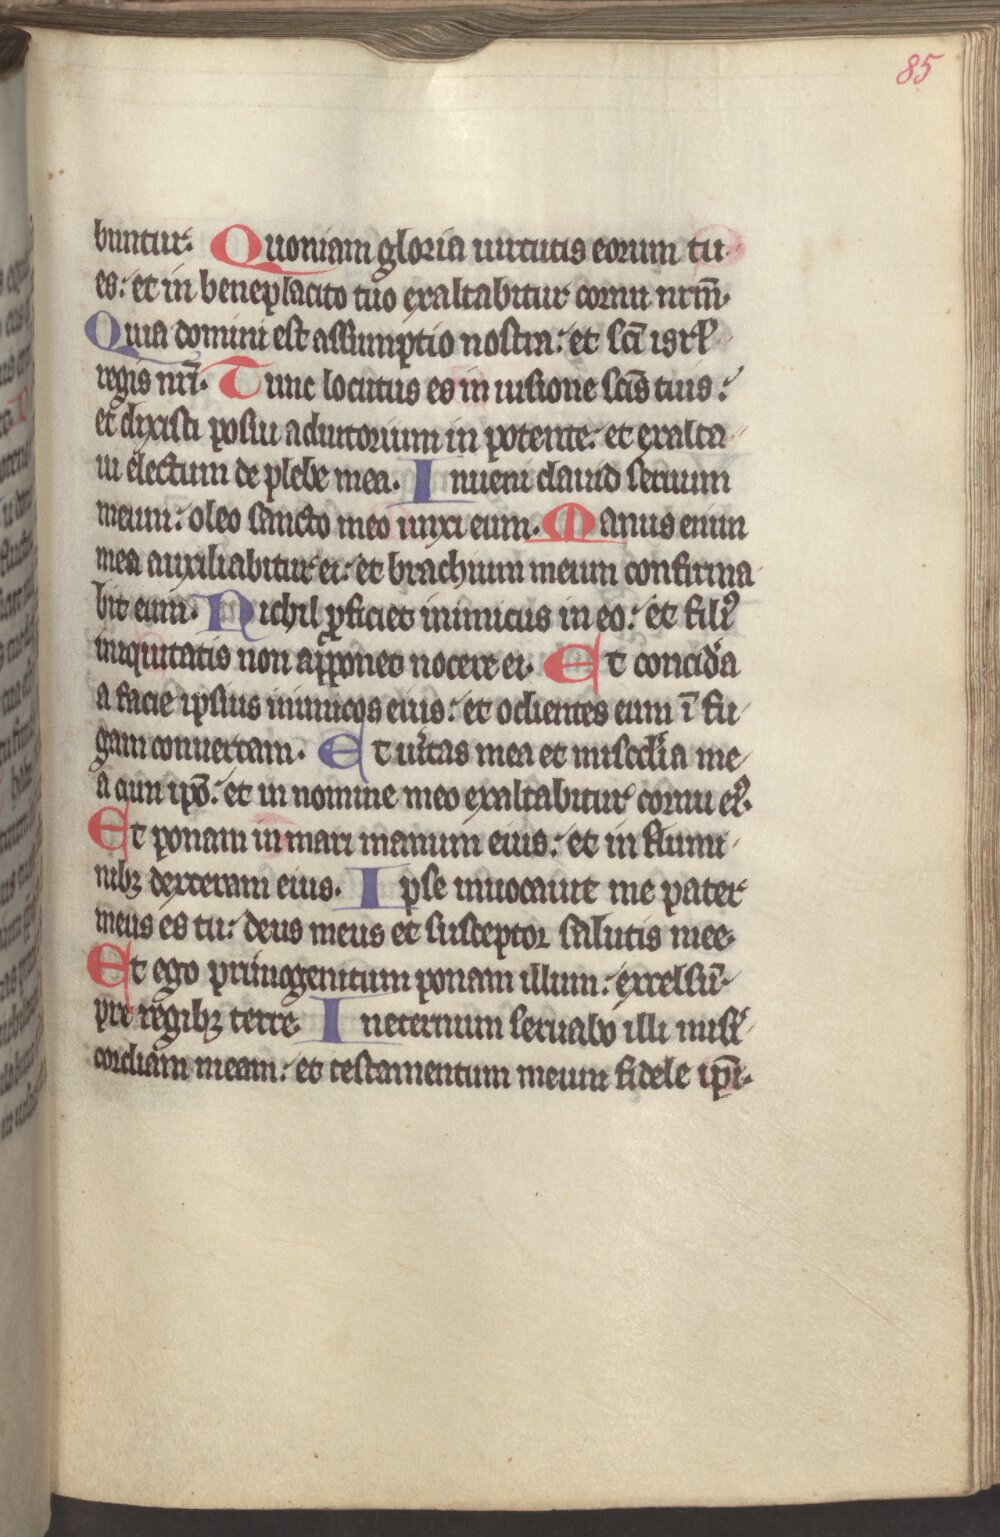 85
buntur. Quoniam gloria uirtutis eorum tu
es: et in beneplacito tuo exaltabitur cornu nrm̄.
Quia domini est assumptio nostra: et sc̄i isrl̄
regis nr̄i. Tunc locutus es in uisione sc̄is tuis:
et dixisti posui adiutorium in potente: et exalta
ui electum de plebe mea. Inueni dauid seruum
meum: oleo sancto meo unxi eum. Manus enim
mea auxiliabitur ei: et brachium meum confirma
bit eum. Nichil ꝓficiet inimicus in eo: et filiꝰ
iniquitatis non apponet nocere ei. Et concidā
a facie ipsius inimicos eius: et odientes eum ī fu
gam conuertam. Et uītas mea et misecd̄ia me
a cum ipō: et in nomine meo exaltabitur cornu eiꝰ.
Et ponam in mari manum eius: et in flumi
nibꝫ dexteram eius. Ipse inuocauit me pater
meus es tu: deus meus et susceptor salutis mee.
Et ego primogenitum ponam illum: excelsū
pre regibꝫ terre. Ineternum seruabo illi misī
cordiam meam: et testamentum meum fidele ip̄i.